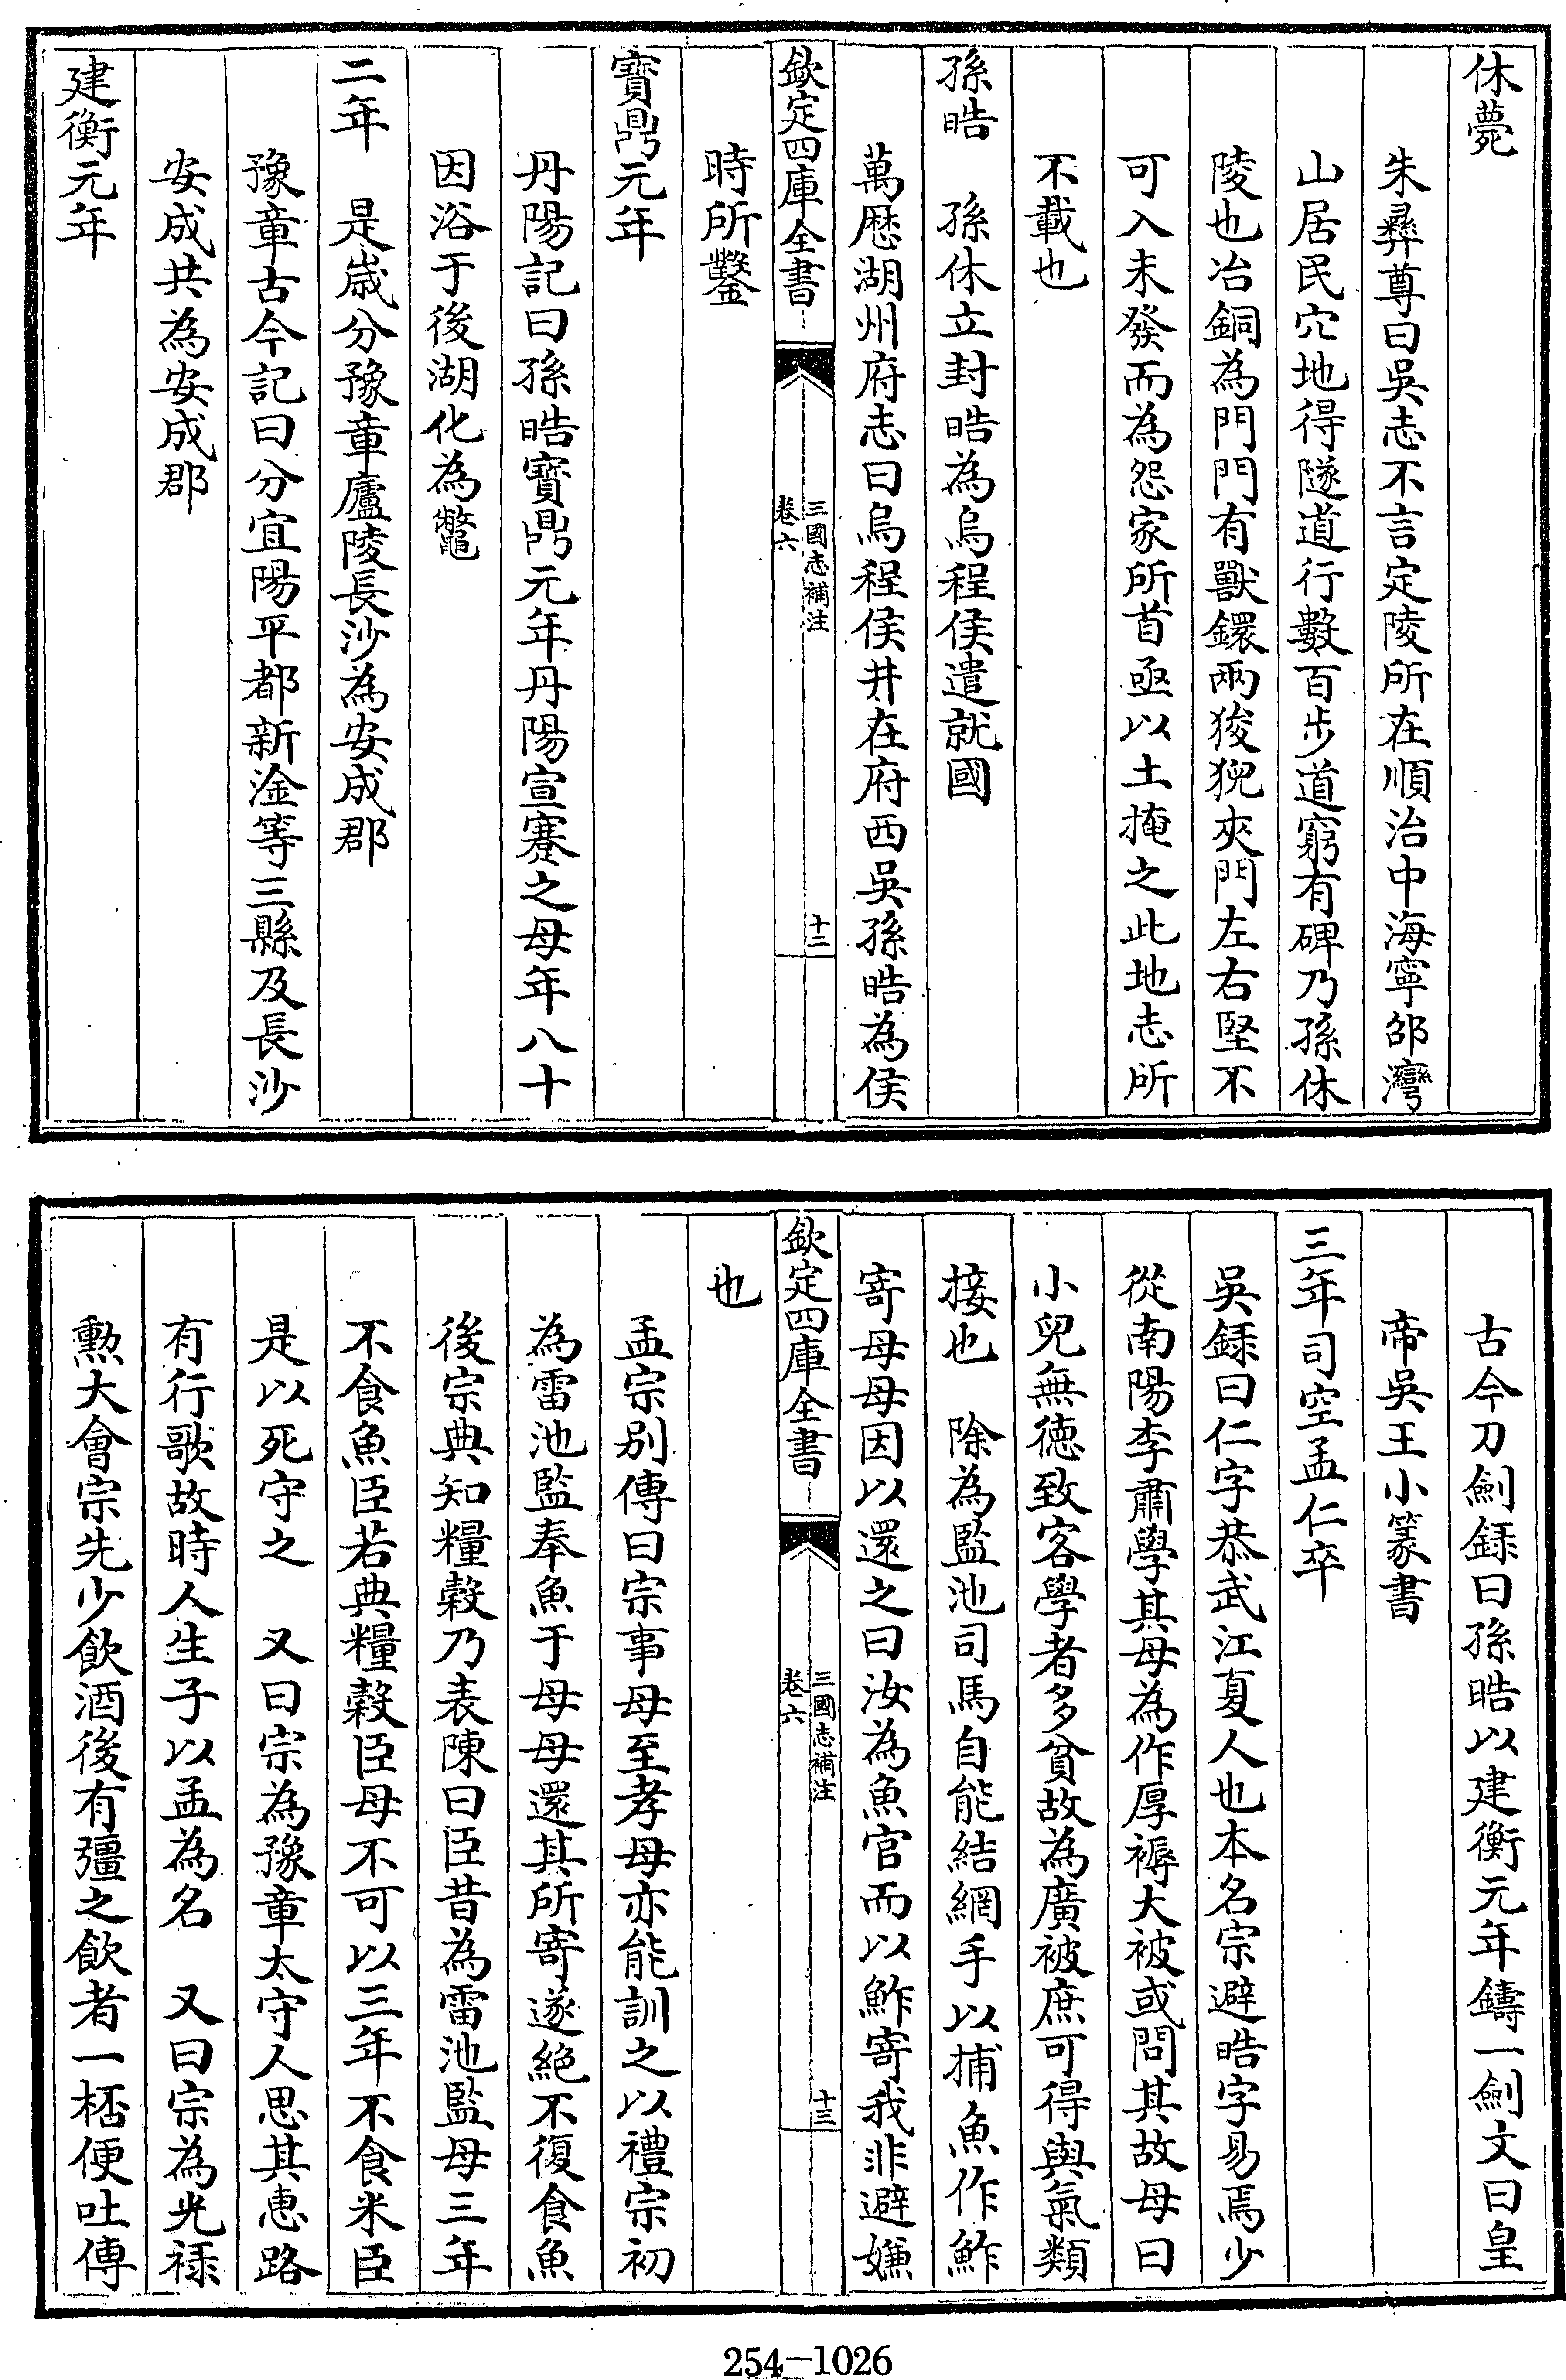 休薨
朱彞尊曰吳志不言定陵所在順治中海寧邵灣
山居民穴地得隧道行數百步道窮有碑乃孫休
陵也冶銅為門門有獸鐶兩狻猊夾門左右堅不
可入未發而為怨家所首亟以土掩之此地志所
不載也
孫晧　孫休立封晧為烏程侯遣就國
萬歴湖州府志曰烏程侯井在府西吳孫晧為侯
欽定四庫全書
三國志補注
卷六
十二
時所鑿
寶鼎元年
丹陽記曰孫晧寶鼎元年丹陽宣騫之母年八十
因浴于後湖化為鼈
二年　是歳分豫章廬陵長沙為安成郡
豫章古今記曰分宜陽平都新淦等三縣及長沙
安成共為安成郡
建衡元年
古今刀劍録曰孫晧以建衡元年鑄一劍文曰皇
帝吳王小篆書
三年司空孟仁卒
吳録曰仁字恭武江夏人也本名宗避晧字易焉少
從南陽李肅學其母為作厚褥大被或問其故母曰
小兒無徳致客學者多貧故為廣被庶可得與氣類
接也　除為監池司馬自能結網手以捕魚作鮓
寄母母因以還之曰汝為魚官而以鮓寄我非避嫌
欽定四庫全書
三國志補注
卷六
十三
也
孟宗別傳曰宗事母至孝母亦能訓之以禮宗初
為雷池監奉魚于母母還其所寄遂絶不復食魚
後宗典知糧榖乃表陳曰臣昔為雷池監母三年
不食魚臣若典糧榖臣母不可以三年不食米臣
是以死守之　又曰宗為豫章太守人思其恵路
有行歌故時人生子以孟為名　又曰宗為光禄
勲大會宗先少飲酒後有彊之飲者一桮便吐傳
254—1026